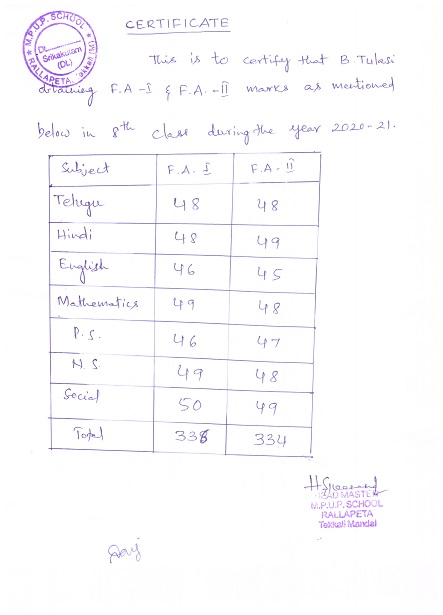 M.P.U.P. SCHOOL
Dt.
Srikakulam
(Dt.)
RALLAPETA, Tekkali (M)
CERTIFICATE
This is to certify that B. Tulasi
obtaining F.A -I & F.A. -II marks as mentioned
below in 8th class during the year 2020-21.
Subject F.A. I F.A - II
Telugu 48 48
Hindi 48 49
English 46 45
Mathematics 49 48
P.S. 46 47
N.S. 49 48
Social 50 49
Total 336 334
HEAD MASTER
M.P.U.P. SCHOOL
RALLAPETA
Tekkali Mandal